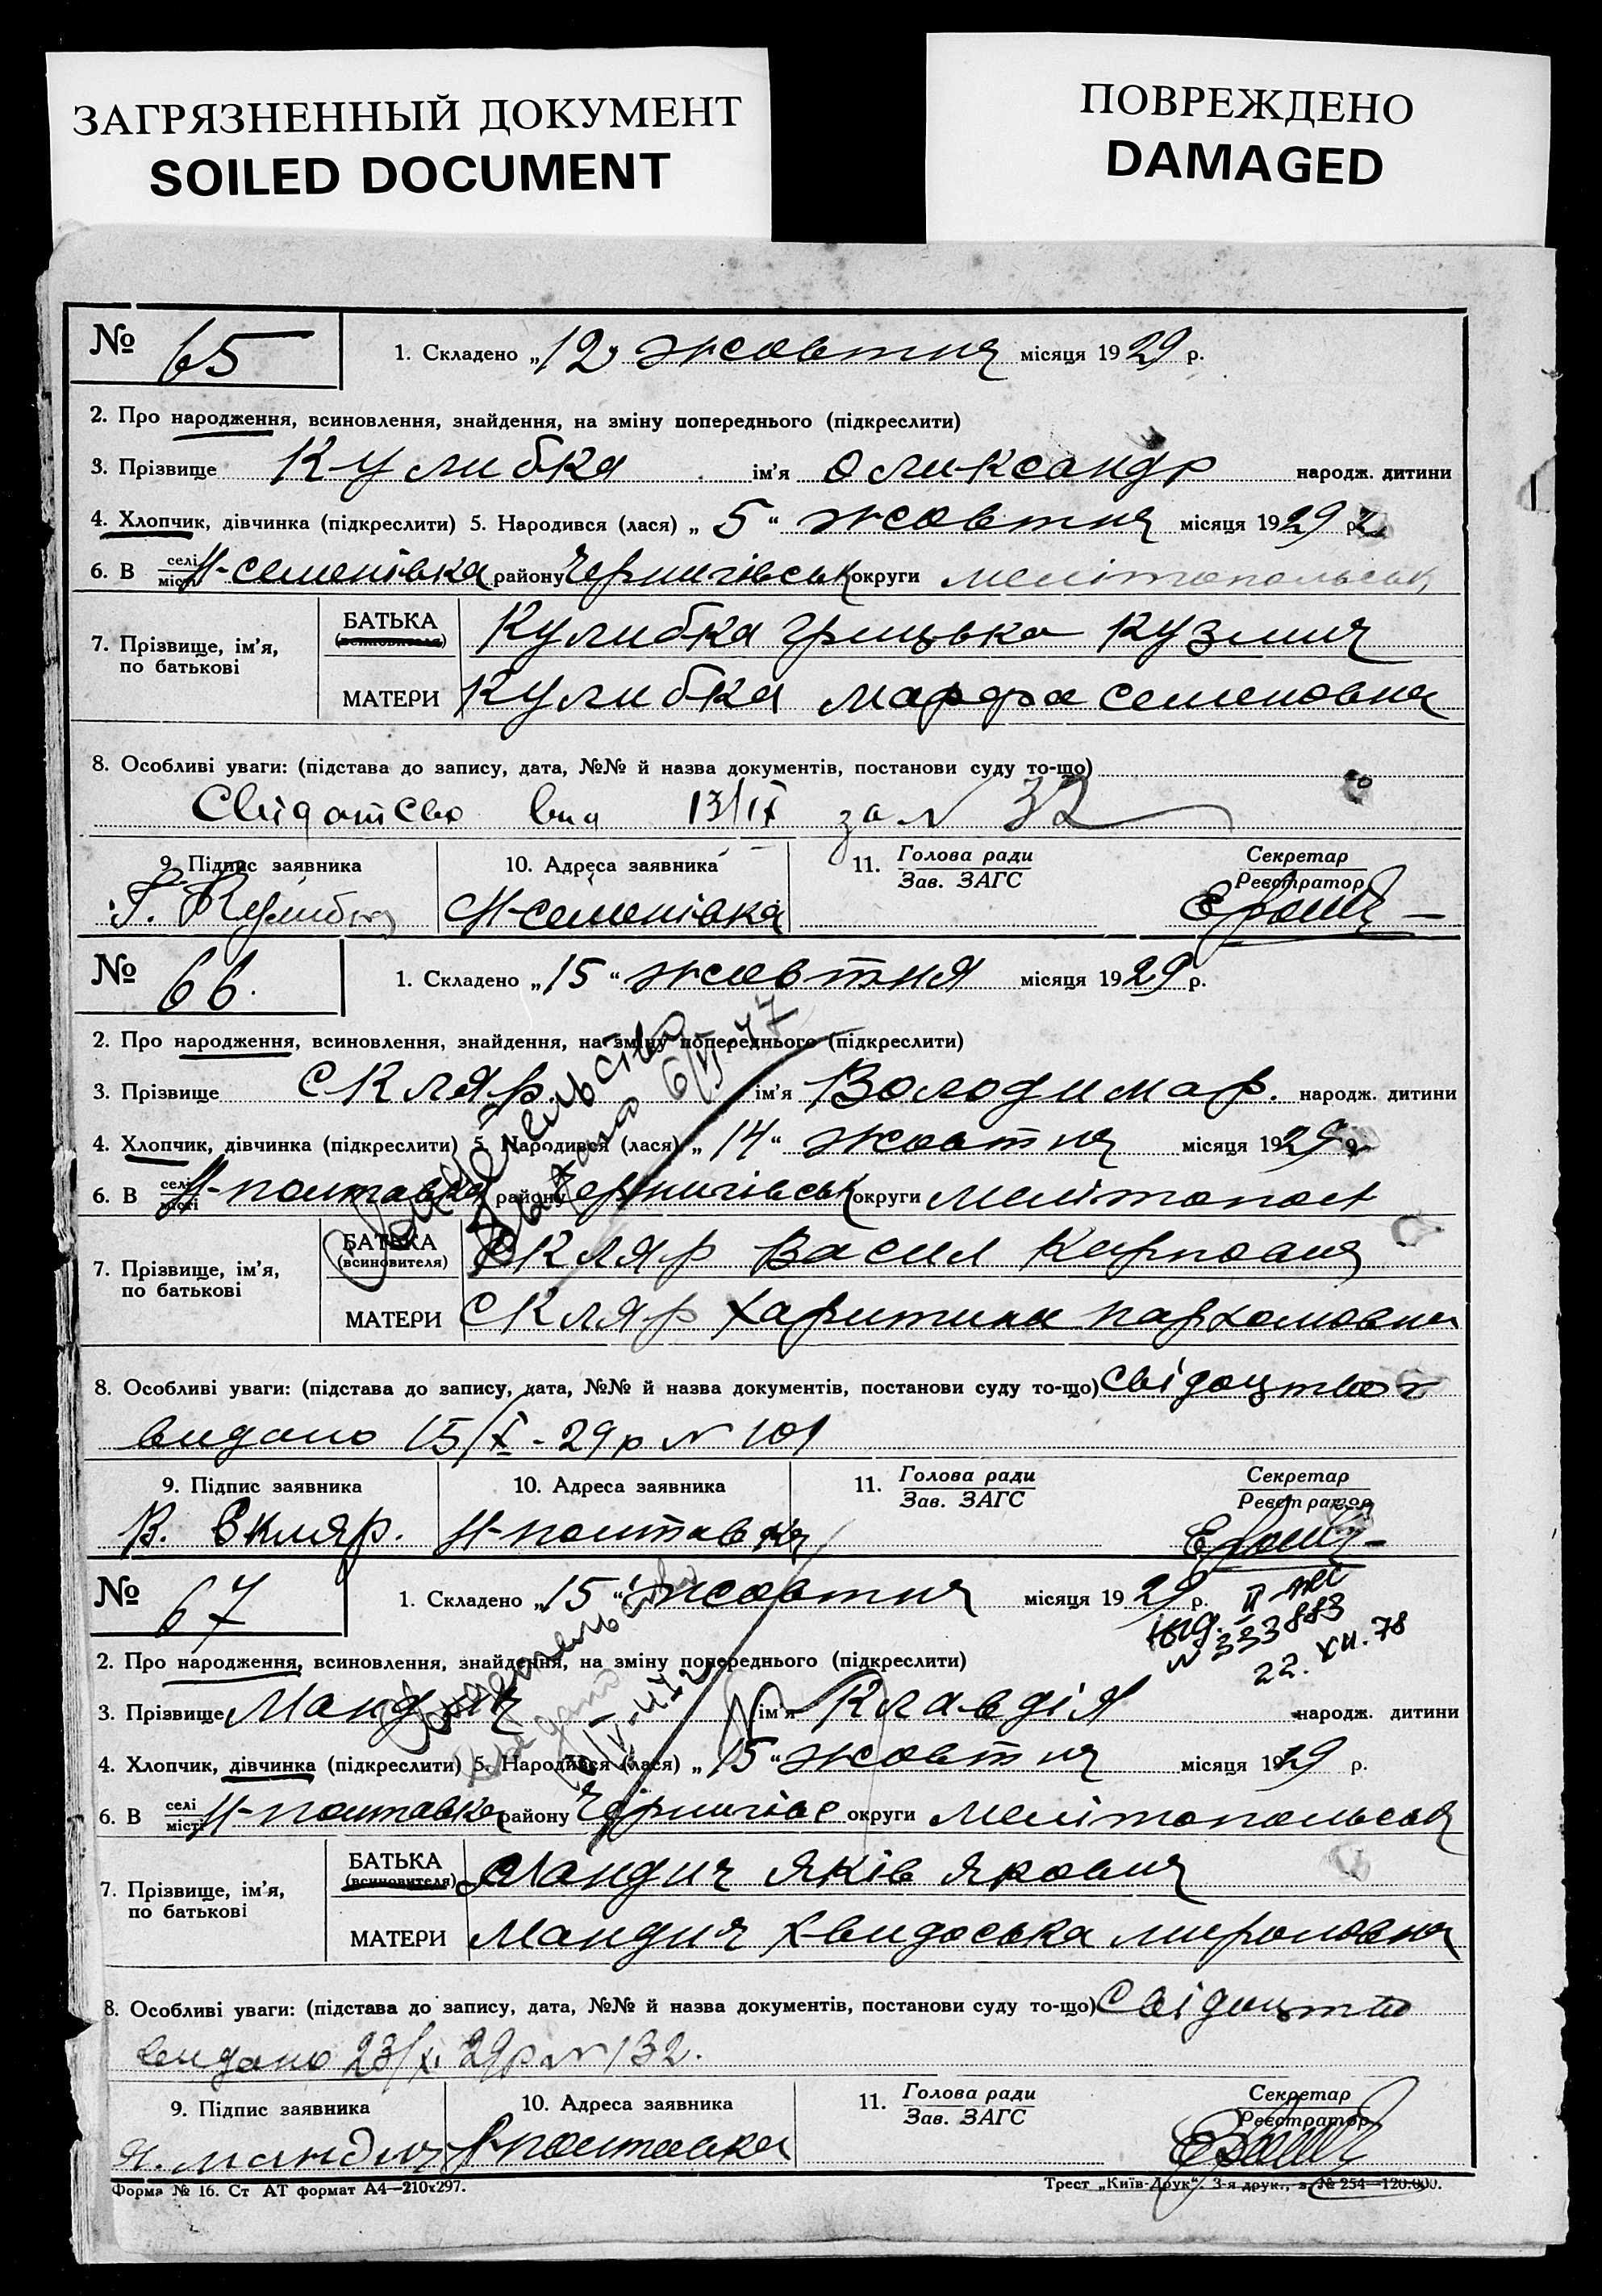 ЗАГРЯЗНЕННЫЙ ДОКУМЕНТ
SOILED DOCUMENT
ПОВРЕЖДЕНО
DAMAGED
№ 65 1. Складено „12„ жовтня місяця 1929 р.
2. Про народження, всиновлення, знайдення, на зміну попереднього (підкреслити)
3. Прізвище Кулибка ім’я Оликсандр народж. дитини
4. Хлопчик, дівчинка (підкреслити) 5. Народився (лася) „ 5 “ жовтня місяця 1929 р.
6. В селі місті Н-семенівка району Чернигівськ округи мелітопольськ
7. Прізвище, ім’я, по батькові
БАТЬКА (всиновителя) Кулибка грицько Кузмич
МАТЕРИ Кулибка марфа семеновна
8. Особливі уваги: (підстава до запису, дата, №№ й назва документів, постанови суду то-що)
за N 32
9. Підпис заявника 10. Адреса заявника 11. Голова ради Зав. ЗАГС Секретар Реєстратор
Г. Кулибка Н-семенівка
№ 66. 1. Складено „15“ жовтня місяця 1929 р.
2. Про народження, всиновлення, знайдення, на зміну попереднього (підкреслити)
3. Прізвище Скляр. ім’я Володимар. народж. дитини
4. Хлопчик, дівчинка (підкреслити) 5. Народився (лася) „ 14 “ жовтня місяця 1929 р.
6. В селі місті Н-полтавка району Чернигівськ округи мелітопол
Свидетельство
выдано 6/VI-47
7. Прізвище, ім’я, по батькові
БАТЬКА (всиновителя) Скляр Васил Карпович
МАТЕРИ Скляр Харитина пархомовна
8. Особливі уваги: (підстава до запису, дата, №№ й назва документів, постанови суду то-що) Свідоцтво
видано 15/X-29р N 101
9. Підпис заявника 10. Адреса заявника 11. Голова ради Зав. ЗАГС Секретар Реєстратор
В. Скляр. Н-полтавка
№ 67 1. Складено „15“ жовтня місяця 1929 р.
N 333883
22. XII. 78
2. Про народження, всиновлення, знайдення, на зміну попереднього (підкреслити)
3. Прізвище Мандич ім’я Клавдія народж. дитини
4. Хлопчик, дівчинка (підкреслити) 5. Народився (лася) „ 15 “ жовтня місяця 1929 р.
6. В селі місті Н-полтавка району Чернигівс округи мелітопольськ
Свидетельство
7. Прізвище, ім’я, по батькові
БАТЬКА (всиновителя) Мандич Яків Якович
МАТЕРИ Мандич Хвидоська мироновна
8. Особливі уваги: (підстава до запису, дата, №№ й назва документів, постанови суду то-що) Свідоцтво
видано 23/X. 29р N 132.
9. Підпис заявника 10. Адреса заявника 11. Голова ради Зав. ЗАГС Секретар Реєстратор
Я. мандич Н-полтавка
Форма № 16. Ст АТ формат А4—210х297. Трест „Київ-Друк“. 3-я друк., з. № 254—120.000.